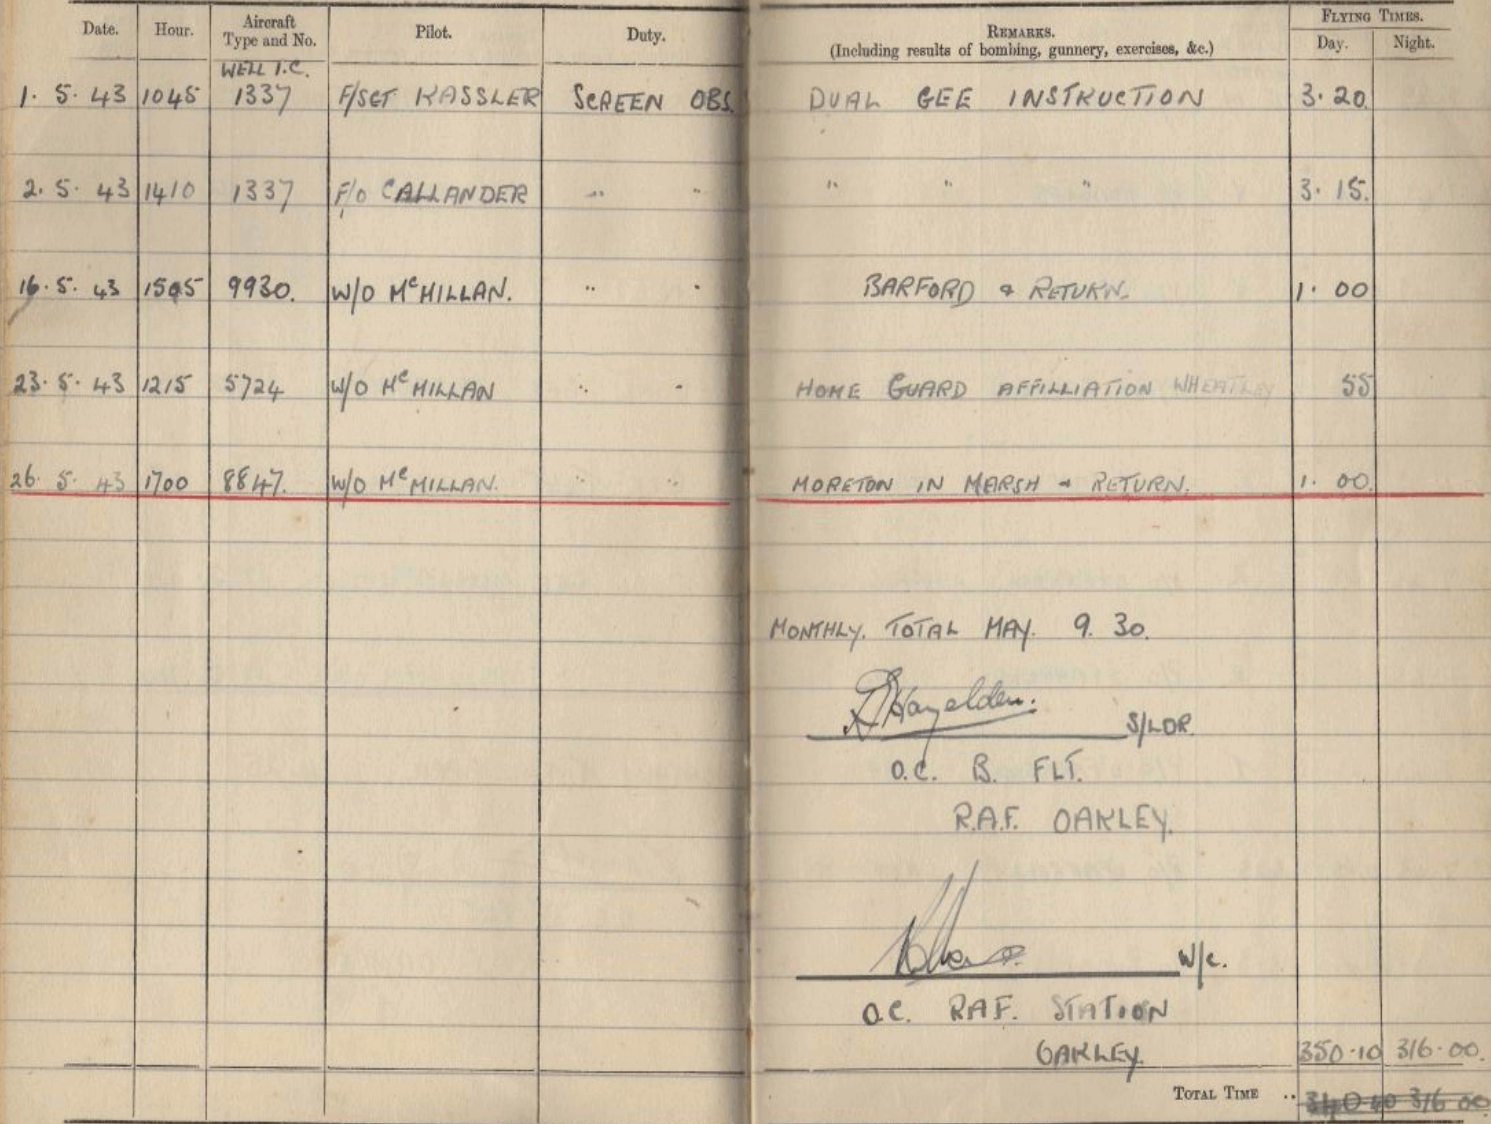 Date. Hour. Aircraft Type and No. Pilot. Duty. REMARKS. (Including results of bombing, gunnery, exercises, &c.) FLYING TIMES. Day. Night.
WELL I.C.
1. 5. 43 1045 1337 F/SGT KASSLER SCREEN OBS. DUAL GEE INSTRUCTION 3. 20
2. 5. 43 1410 1337 F/O CALLANDER " " " " " 3. 15.
16. 5. 43 1505 9930. W/O McMILLAN. " " BARFORD & RETURN. 1. 00
23. 5. 43 1215 5724 W/O McMILLAN " " HOME GUARD AFFILLIATION WHEATLEY 55
26. 5. 43 1700 8847. W/O McMILLAN. " " MORETON IN MARSH & RETURN. 1. 00.
MONTHLY. TOTAL MAY. 9. 30.
S/LDR.
O.C. B. FLT.
R.A.F. OAKLEY.
W/C.
O.C. RAF. STATION
OAKLEY. 350.10 316.00.
TOTAL TIME .. 340.40 316 00